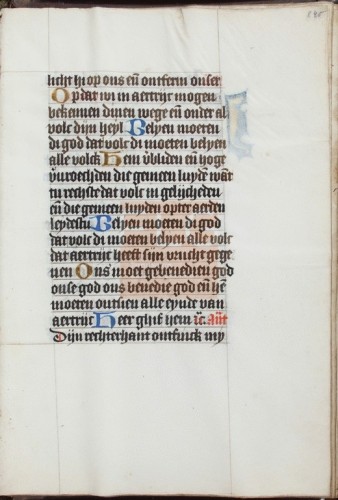 licht hi op ons en̄ ontferm onser
Op dat wi in aertrijc mogen
bekennen dinen wege en̄ onder al
volc dijn heyl Belyen moeten
di god dat volc di moeten belyen
alle volck Hem vbliden en̄ hoge
vuroechden die gemeen luyde want
tu rechste dat volc in gelijcheden
en̄ die gemeen luyden opter aerden
leydestu Belyen moeten di god
dat volc di moeten belyen alle volc
dat aertrijc heeft sijn vrucht gege
uen Ons moet gebenedien god
onse god ons benedie god en̄ hē
moeten ontsien alle eynde van
aertrijc Heer ghif hem ic. Ant
Dijn rechterhant ontfinck my